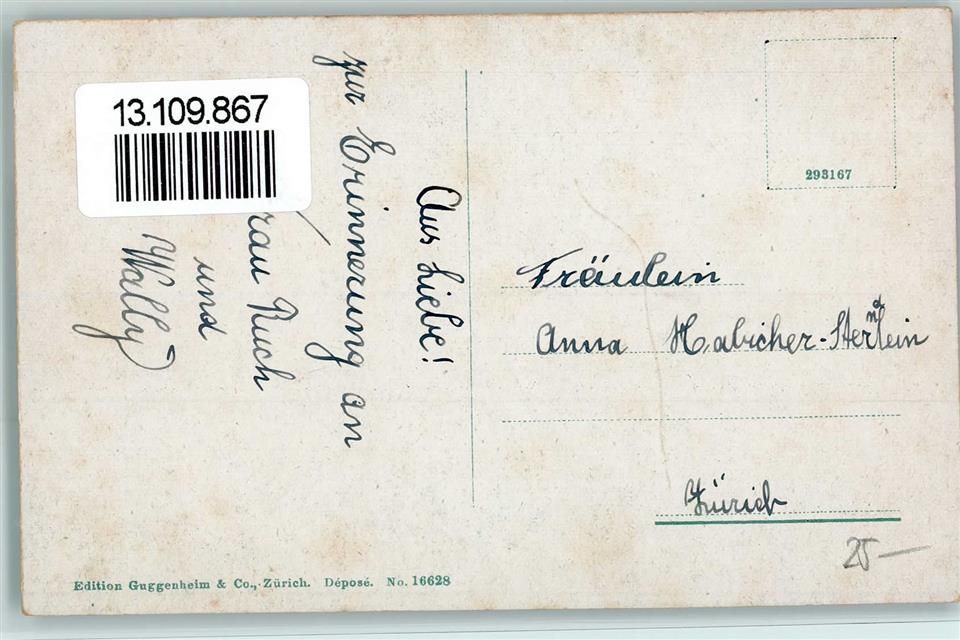 13.109.867
Aus Liebe!
zur Erinnerung an
Frau Ruch
und
Wally
293167
Fräulein
Anna Habicher-Sterlein
nd
Zürich
25—
Edition Guggenheim & Co., Zürich. Déposé. No. 16628